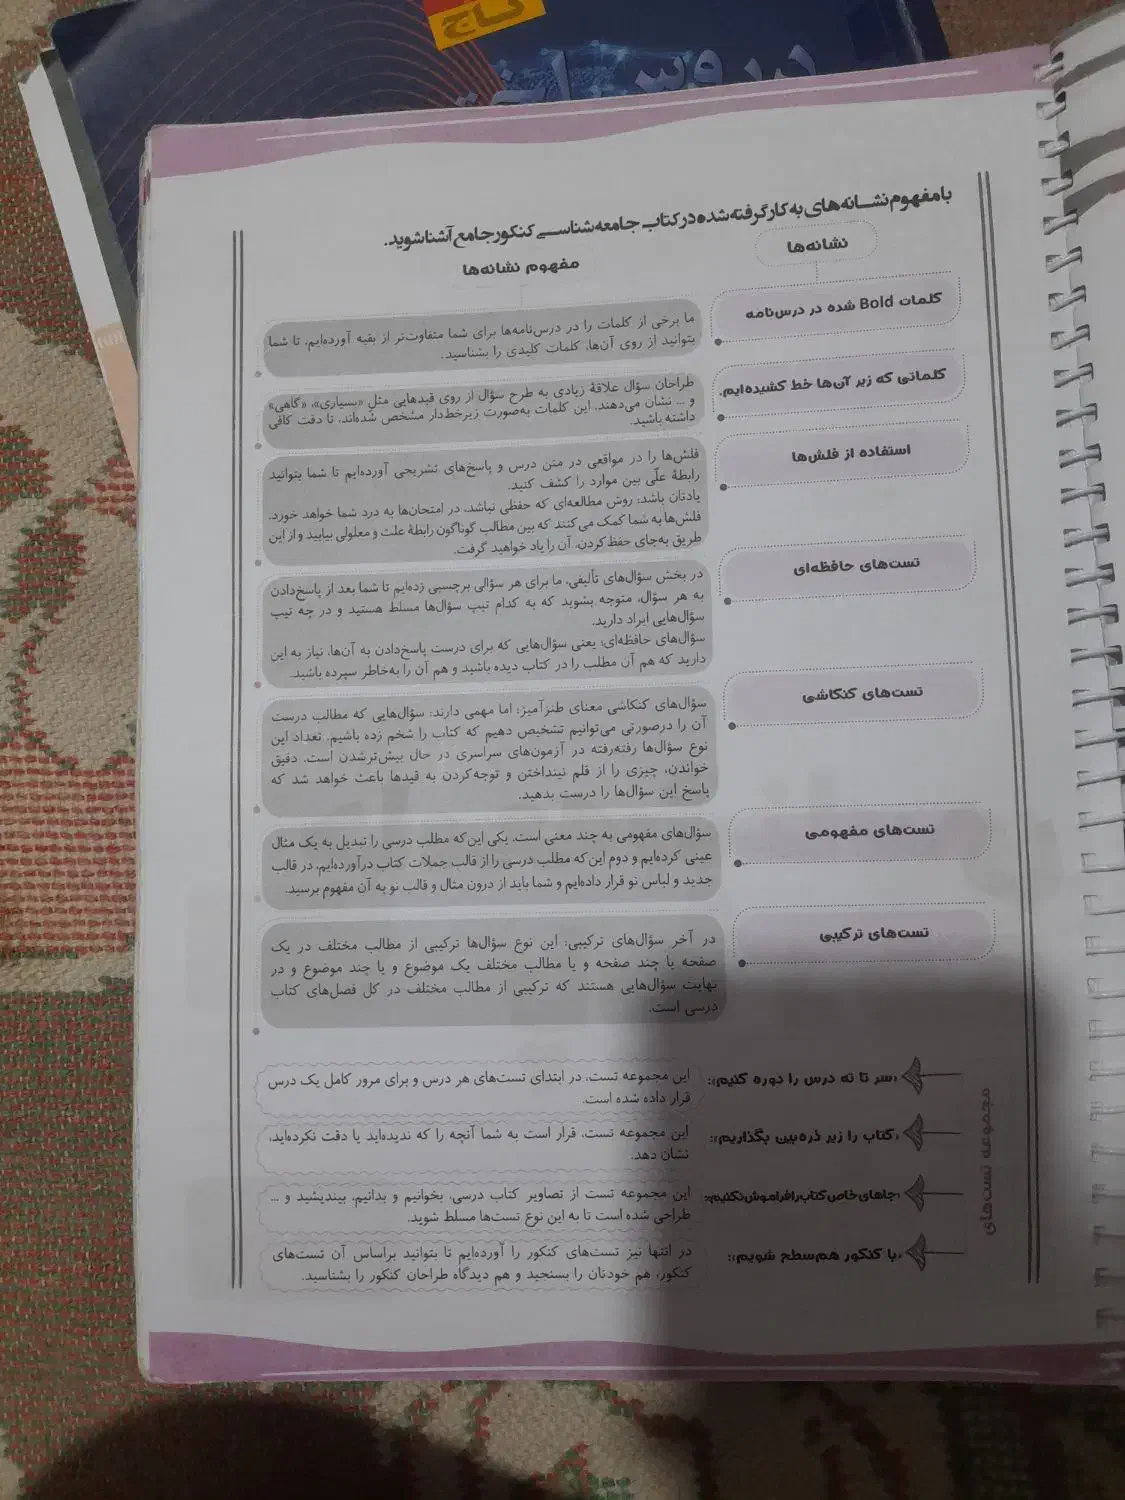 گاج
دروس
با مفهوم نشانه‌های به کار گرفته شده در کتاب جامعه‌شناسی کنکور جامع آشنا شوید.
نشانه‌ها
مفهوم نشانه‌ها
کلمات Bold شده در درس‌نامه
ما برخی از کلمات را در درس‌نامه‌ها برای شما متفاوت‌تر از بقیه آورده‌ایم، تا شما
بتوانید از روی آن‌ها، کلمات کلیدی را بشناسید.
کلماتی که زیر آن‌ها خط کشیده‌ایم.
طراحان سؤال علاقهٔ زیادی به طرح سؤال از روی قیدهایی مثل «بسیاری»، «گاهی»
و ... نشان می‌دهند. این کلمات به‌صورت زیرخط‌دار مشخص شده‌اند، تا دقت کافی
داشته باشید.
استفاده از فلش‌ها
فلش‌ها را در مواقعی در متن درس و پاسخ‌های تشریحی آورده‌ایم تا شما بتوانید
رابطهٔ علّی بین موارد را کشف کنید.
یادتان باشد: روش مطالعه‌ای که حفظی نباشد، در امتحان‌ها به درد شما خواهد خورد.
فلش‌ها به شما کمک می‌کنند که بین مطالب گوناگون رابطهٔ علت و معلولی بیابید و از این
طریق به‌جای حفظ‌کردن، آن را یاد خواهید گرفت.
تست‌های حافظه‌ای
در بخش سؤال‌های تألیفی، ما برای هر سؤالی برچسبی زده‌ایم تا شما بعد از پاسخ‌دادن
به هر سؤال، متوجه بشوید که به کدام تیپ سؤال‌ها مسلط هستید و در چه تیپ
سؤال‌هایی ایراد دارید.
سؤال‌های حافظه‌ای؛ یعنی سؤال‌هایی که برای درست پاسخ‌دادن به آن‌ها، نیاز به این
دارید که هم آن مطلب را در کتاب دیده باشید و هم آن را به‌خاطر سپرده باشید.
تست‌های کنکاشی
سؤال‌های کنکاشی معنای طنزآمیز؛ اما مهمی دارند: سؤال‌هایی که مطالب درست
آن را درصورتی می‌توانیم تشخیص دهیم که کتاب را شخم زده باشیم. تعداد این
نوع سؤال‌ها رفته‌رفته در آزمون‌های سراسری در حال بیش‌ترشدن است. دقیق
خواندن، چیزی را از قلم نینداختن و توجه‌کردن به قیدها باعث خواهد شد که
پاسخ این سؤال‌ها را درست بدهید.
تست‌های مفهومی
سؤال‌های مفهومی به چند معنی است. یکی این‌که مطلب درسی را تبدیل به یک مثال
عینی کرده‌ایم و دوم این‌که مطلب درسی را از قالب جملات کتاب درآورده‌ایم، در قالب
جدید و لباس نو قرار داده‌ایم و شما باید از درون مثال و قالب نو به آن مفهوم برسید.
تست‌های ترکیبی
در آخر سؤال‌های ترکیبی: این نوع سؤال‌ها ترکیبی از مطالب مختلف در یک
صفحه یا چند صفحه و یا مطالب مختلف یک موضوع و یا چند موضوع و در
نهایت سؤال‌هایی هستند که ترکیبی از مطالب مختلف در کل فصل‌های کتاب
درسی است.
مجموعه تست‌های
«سر تا ته درس را دوره کنیم»:
این مجموعه تست، در ابتدای تست‌های هر درس و برای مرور کامل یک درس
قرار داده شده است.
«کتاب را زیر ذره‌بین بگذاریم»:
این مجموعه تست، قرار است به شما آنچه را که ندیده‌اید یا دقت نکرده‌اید،
نشان دهد.
«جاهای خاص کتاب را فراموش نکنیم»:
این مجموعه تست از تصاویر کتاب درسی، بخوانیم و بدانیم، بیندیشید و ...
طراحی شده است تا به این نوع تست‌ها مسلط شوید.
«با کنکور هم‌سطح شویم»:
در انتها نیز تست‌های کنکور را آورده‌ایم تا بتوانید براساس آن تست‌های
کنکور، هم خودتان را بسنجید و هم دیدگاه طراحان کنکور را بشناسید.